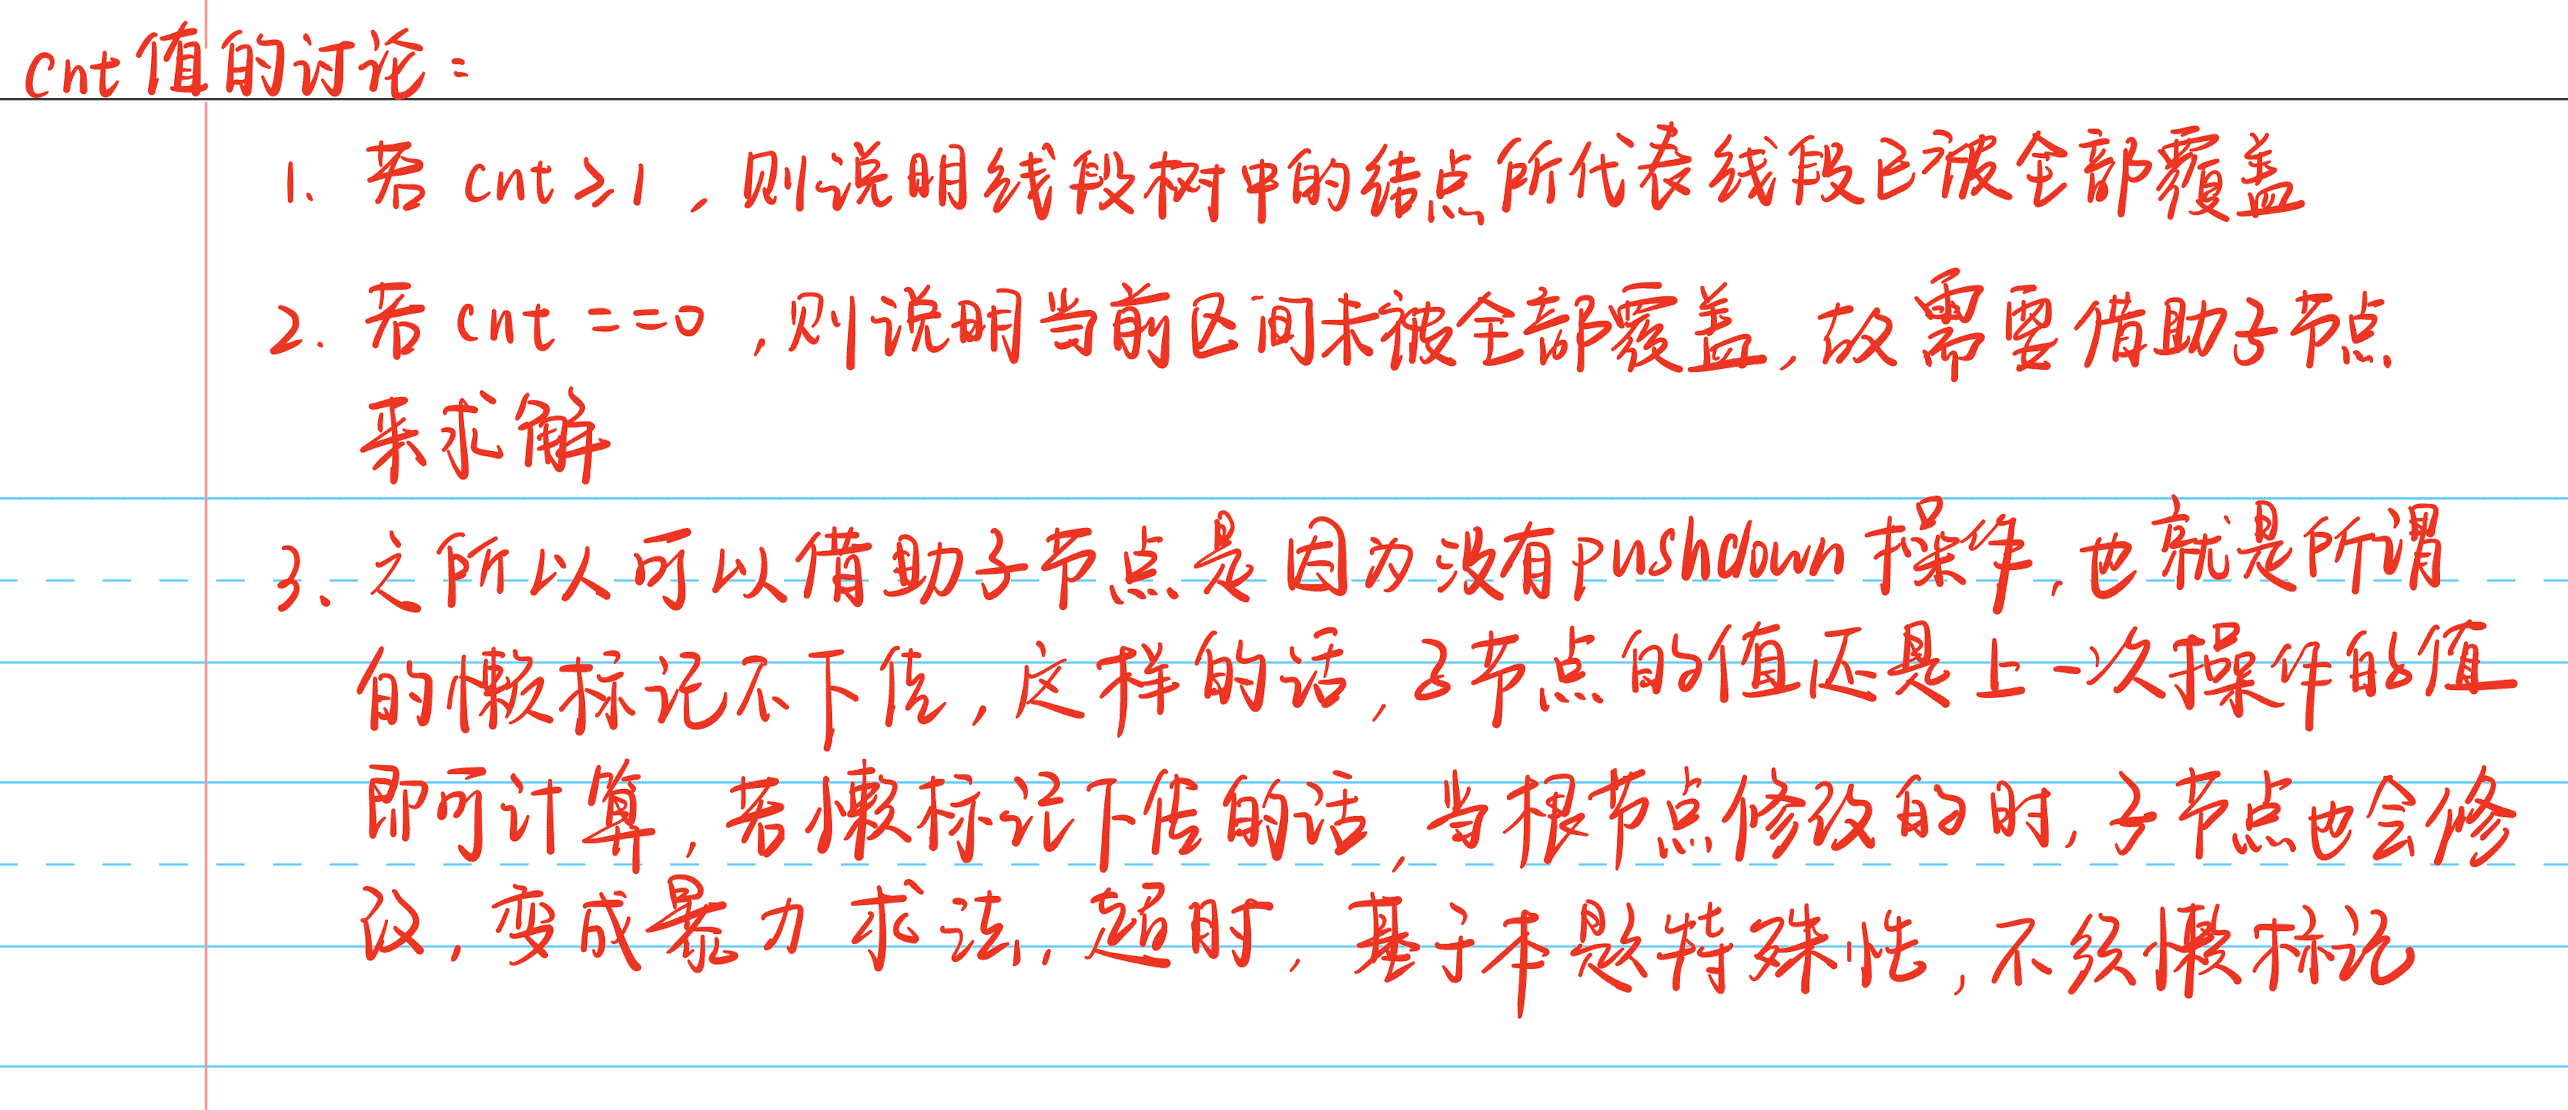 cnt值的讨论：
1. 若 cnt≥1，则说明线段树中的结点所代表线段已被全部覆盖
2. 若 cnt==0，则说明当前区间未被全部覆盖，故需要借助子节点
来求解
3、之所以可以借助子节点是因为没有pushdown操作，也就是所谓
的懒标记不下传，这样的话，子节点的值还是上一次操作的值
即可计算，若懒标记下传的话，当根节点修改的时，子节点也会修
改，变成暴力求法，超时，基于本题特殊性，不须懒标记